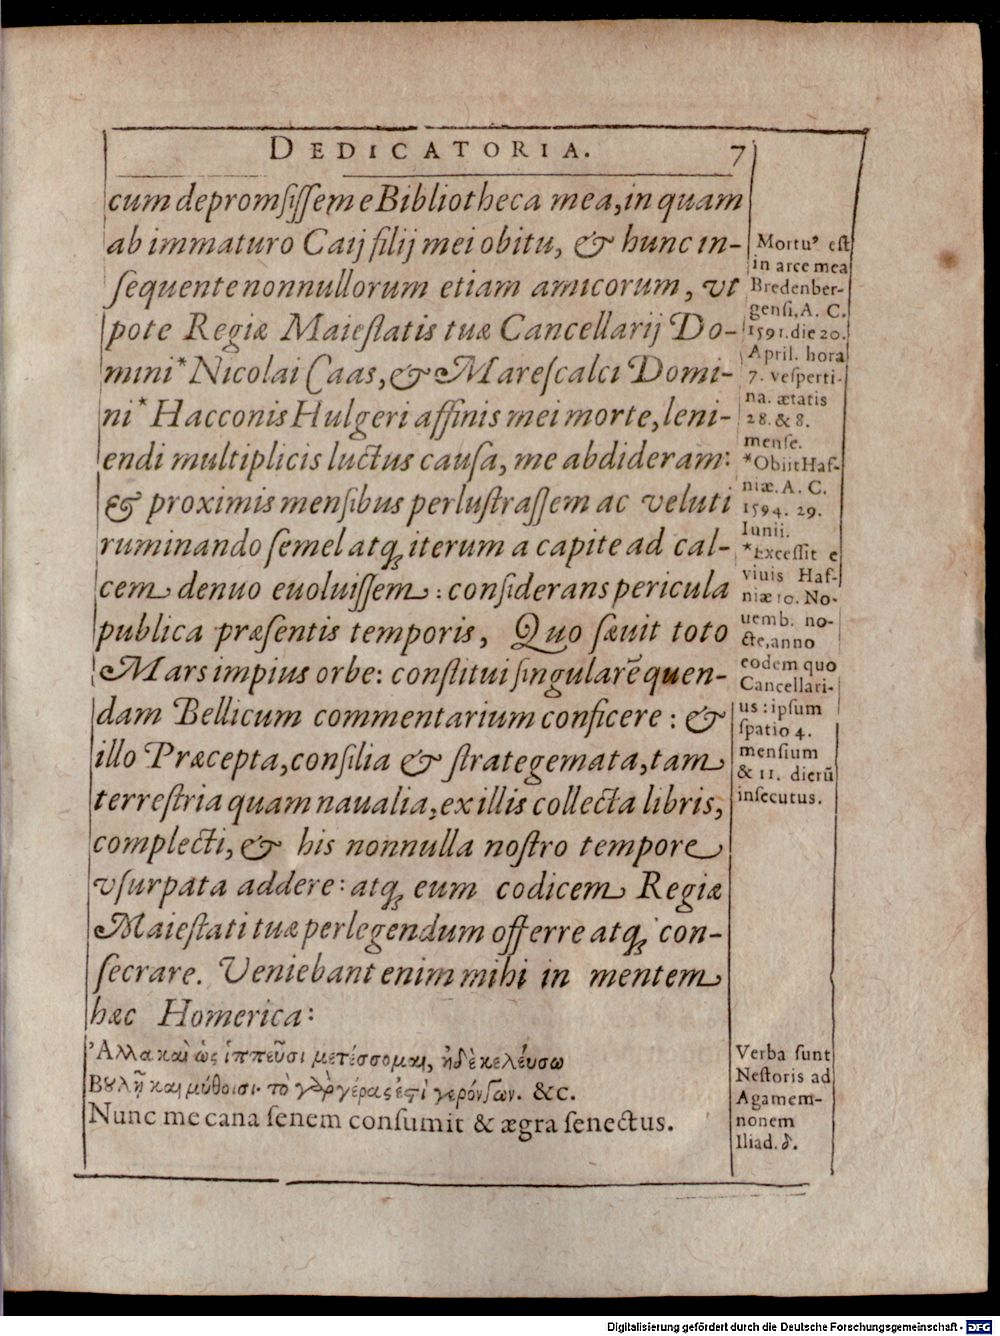 DEDICATORIA. 7
cum depromſiſſem e Bibliotheca mea, in quam
ab immaturo Caij filij mei obitu, & hunc in-
ſequente nonnullorum etiam amicorum, vt
pote Regiæ Maieſtatis tuæ Cancellarij Do-
mini* Nicolai Caas, & Mareſcalci Domi-
ni* Hacconis Hulgeri affinis mei morte, leni-
endi multiplicis luctus cauſa, me abdideram:
& proximis menſibus perluſtraſſem ac veluti
ruminando ſemel atq; iterum a capite ad cal-
cem denuo euoluiſſem: conſiderans pericula
publica præſentis temporis, Quo ſæuit toto
Mars impius orbe: conſtitui ſingularē quen-
dam Bellicum commentarium conficere: &
illo Præcepta, conſilia & ſtrategemata, tam
terreſtria quam naualia, ex illis collecta libris,
complecti, & his nonnulla noſtro tempore
vſurpata addere: atq; eum codicem Regiæ
Maieſtati tuæ perlegendum offerre atq; con-
ſecrare. Veniebant enim mihi in mentem
hæc Homerica:
Ἀλλὰ καὶ ὣς ἱππεῦσι μετέσσομαι, ἠδὲ κελεύσω
Βουλῇ καὶ μύθοισι· τὸ γὰρ γέρας ἐστὶ γερόντων. &c.
Nunc me cana ſenem conſumit & ægra ſenectus.
Mortu⁹ eſt
in arce mea
Bredenber-
genſi, A. C.
1591. die 20.
April. hora
7. veſperti-
na. ætatis
28. & 8.
menſe.
*Obiit Haf-
niæ. A. C.
1594. 29.
Iunii.
*Exceſſit e
viuis Haf-
niæ 10. No-
uemb. no-
cte, anno
eodem quo
Cancellari-
us: ipſum
ſpatio 4.
menſium
& 11. dierū
inſecutus.
Verba ſunt
Neſtoris ad
Agamem-
nonem
Iliad. δ.
Digitalisierung gefördert durch die Deutsche Forschungsgemeinschaft - DFG